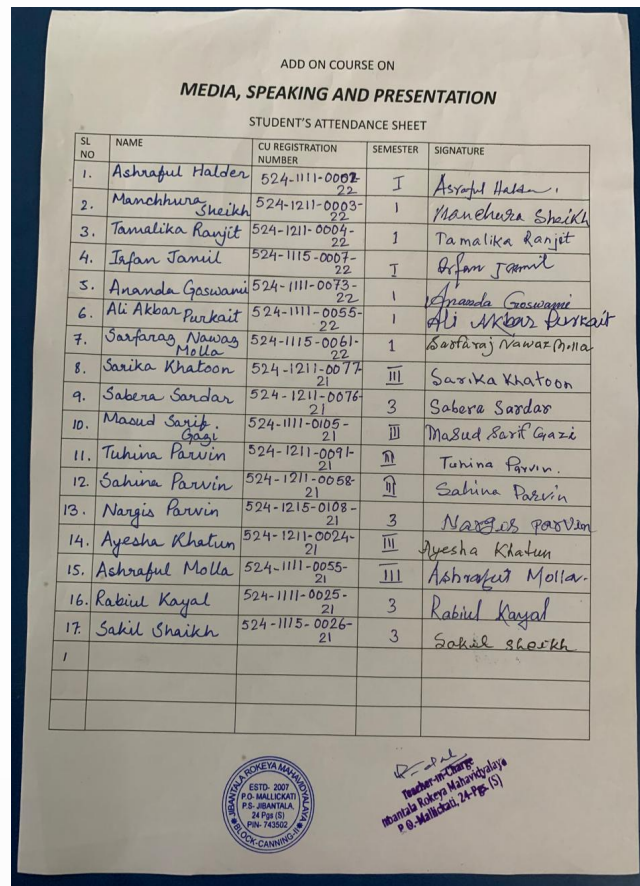 ADD ON COURSE ON
MEDIA, SPEAKING AND PRESENTATION
STUDENT'S ATTENDANCE SHEET
SL NO NAME CU REGISTRATION NUMBER SEMESTER SIGNATURE
1. Ashraful Halder 524-1111-0002-22 I Asraful Halder.
2. Manchhura Sheikh 524-1211-0003-22 1 Manchura Sheikh
3. Tamalika Ranjit 524-1211-0004-22 1 Tamalika Ranjit
4. Irfan Jamil 524-1115-0007-22 I Irfan Jamil
5. Ananda Goswami 524-1111-0073-22 1 Ananda Goswami
6. Ali Akbar Purkait 524-1111-0055-22 1 Ali Akbar Purkait
7. Sarfaraz Nawaz Molla 524-1115-0061-22 1 Sarfaraj Nawaz Molla
8. Sarika Khatoon 524-1211-0077-21 III Sarika Khatoon
9. Sabera Sardar 524-1211-0076-21 3 Sabera Sardar
10. Masud Sarif. Gazi 524-1111-0105-21 III Masud Sarif Gazi
11. Tuhina Parvin 524-1211-0091-21 III Tuhina Parvin.
12 Sahina Parvin 524-1211-0058-21 III Sahina Parvin
13. Nargis Parvin 524-1215-0108-21 3 Nargis Parvin
14. Ayesha Khatun 524-1211-0024-21 III Ayesha Khatun
15. Ashraful Molla 524-1111-0055-21 III Ashraful Molla.
16. Rabiul Kayal 524-1111-0025-21 3 Rabiul Kayal
17. Sakil Shaikh 524-1115-0026-21 3 Sakil Sheikh
1
JIBANTALA ROKEYA MAHAVIDYALAYA
ESTD- 2007
P.O- MALLICKATI
P.S- JIBANTALA,
24 Pgs (S)
PIN- 743502
BLOCK-CANNING-II
Teacher-in-Charge
mbantala Rokeya Mahavidyalaya
P.O.-Mallickati, 24-Pgs. (S)